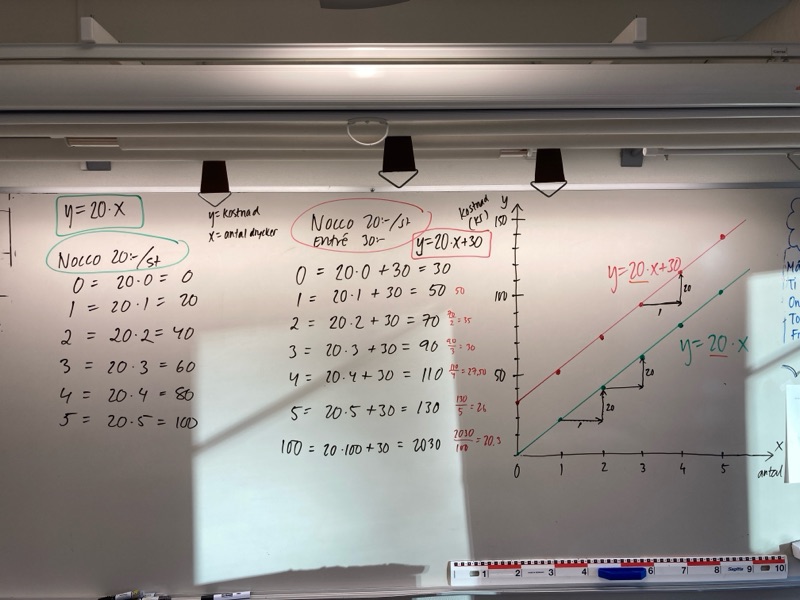 y=20·x
y=kostnad
x=antal drycker
Nocco 20:-/st
0 = 20·0 = 0
1 = 20·1 = 20
2 = 20·2 = 40
3 = 20·3 = 60
4 = 20·4 = 80
5 = 20·5 = 100
Nocco 20:-/st
Entré 30:-
y=20·x+30
0 = 20·0 + 30 = 30
1 = 20·1 + 30 = 50 50
2 = 20·2 + 30 = 70 70/2 = 35
3 = 20·3 + 30 = 90 90/3 = 30
4 = 20·4 + 30 = 110 110/4 = 27,50
5 = 20·5 + 30 = 130 130/5 = 26
100 = 20·100 + 30 = 2030 2030/100 = 20.3
kostnad
(kr)
y
150
100
50
0 1 2 3 4 5
x
antal
y=20·x+30
1
20
y=20·x
20
1
20
Må
Ti
On
To
Fr
1 2 3 4 5 6 7 8 9 10